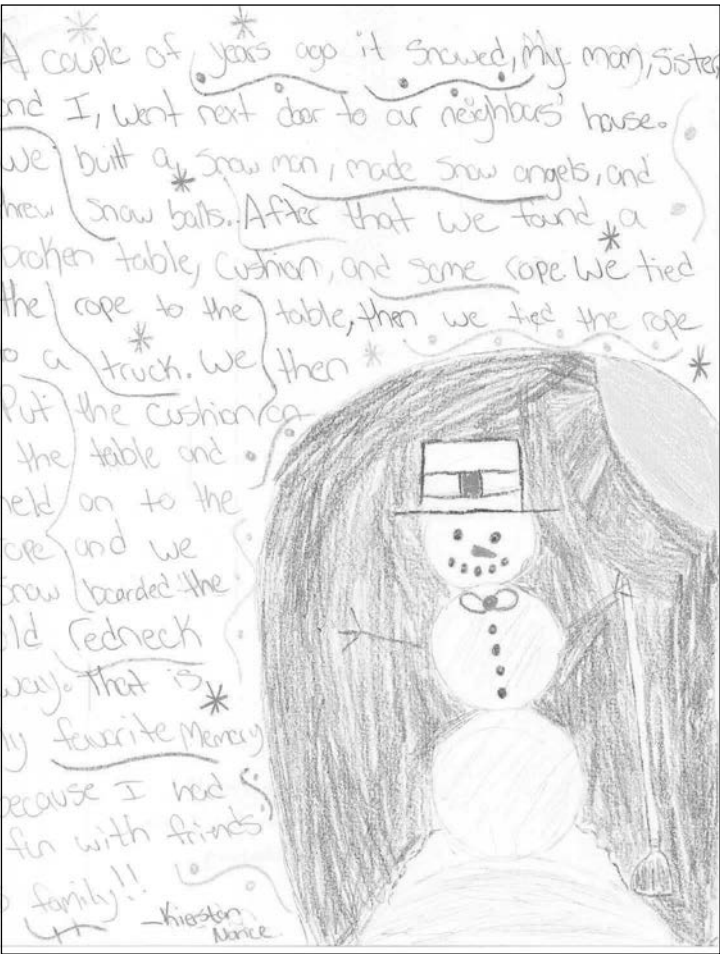 A couple of years ago it snowed, My mom, sister
and I, went next door to our neighbors' house.
we built a snow man, made snow angels, and
threw snow balls. After that we found a
broken table, cushion, and some rope. We tied
the rope to the table, then we tied the rope
to a truck. We then
Put the cushion on
the table and
held on to the
rope and we
snow boarded the
old redneck
way. That is
My favorite Memory
because I had
fun with friends
family!!
-Kierstan
Norice